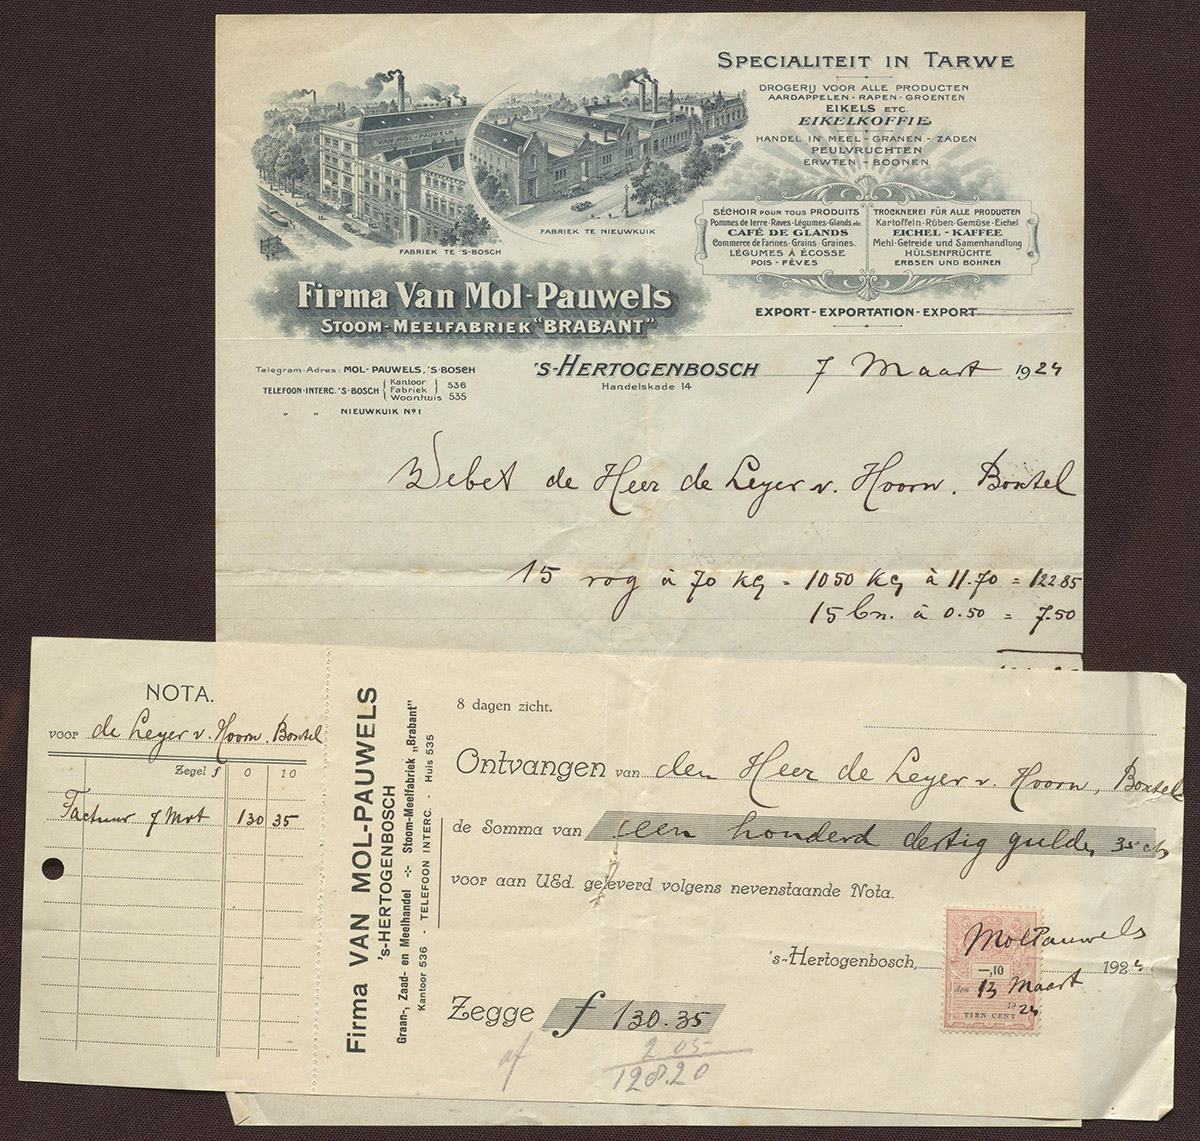 SPECIALITEIT IN TARWE
DROGERIJ VOOR ALLE PRODUCTEN
AARDAPPELEN - RAPEN - GROENTEN
EIKELS ETC.
EIKELKOFFIE
HANDEL IN MEEL - GRANEN - ZADEN
PEULVRUCHTEN
ERWTEN - BOONEN
VAN MOL-PAUWELS
FABRIEK TE 'S-BOSCH
FABRIEK TE NIEUWKUIK
SÉCHOIR POUR TOUS PRODUITS
Pommes de terre-Raves-Légumes-Glands.etc.
CAFÉ DE GLANDS
Commerce de Farines - Grains - Graines.
LÉGUMES À ÉCOSSE
POIS - FÈVES
TROCKNEREI FÜR ALLE PRODUCTEN
Kartoffeln - Rüben - Gemüse - Eichel
EICHEL - KAFFEE
Mehl-Getreide und Samenhandlung
HÜLSENFRÜCHTE
ERBSEN UND BOHNEN
EXPORT - EXPORTATION - EXPORT
Firma Van Mol-Pauwels
STOOM-MEELFABRIEK "BRABANT"
Telegram-Adres: MOL-PAUWELS, 'S-BOSCH
TELEFOON-INTERC. 'S-BOSCH { Kantoor } 536
Fabriek
Woonhuis 535
„ „ NIEUWKUIK No 1
'S-HERTOGENBOSCH 7 Maart 1924
Handelskade 14
Debet de Heer de Leyer v. Hoorn. Boxtel
15 rog à 70 kg = 1050 kg à 11.70 = 122.85
15 bn. à 0.50 = 7.50
NOTA.
voor de Leyer v. Hoorn. Boxtel
Zegel f 0 10
Factuur 7 Mrt 130 35
Firma VAN MOL-PAUWELS
's-HERTOGENBOSCH
Graan-, Zaad- en Meelhandel -:- Stoom-Meelfabriek „Brabant"
Kantoor 536 - TELEFOON INTERC. - Huis 535
8 dagen zicht.
Ontvangen van den Heer de Leyer v. Hoorn, Boxtel
de Somma van een honderd dertig gulden 35 cts
voor aan UEd. geleverd volgens nevenstaande Nota.
's-Hertogenbosch, 1924
MolPauwels
—,10
den 13 Maart
19 24
TIEN CENT
Zegge f 130.35
af 2 05
128.20